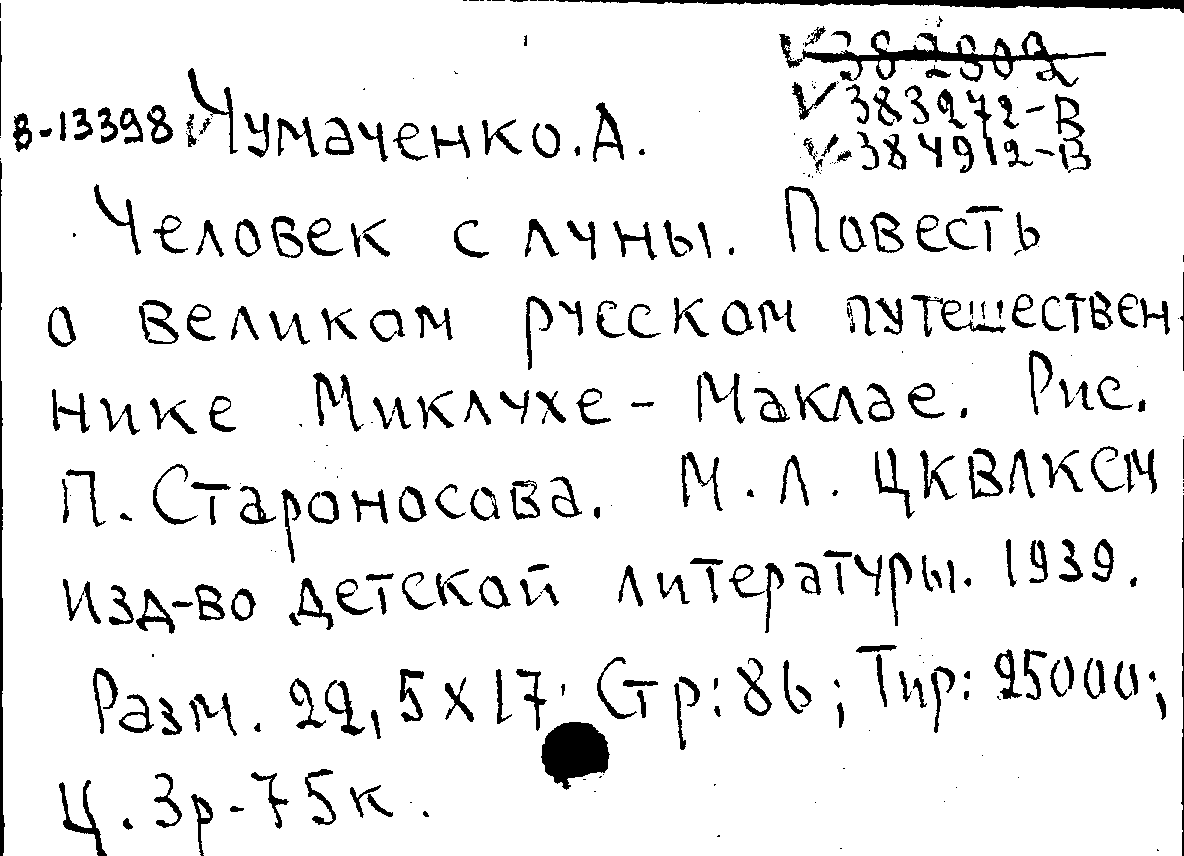 382302
383272-В
В-13398 Чумаченко.А.
384912-В
Человек с луны. Повесть
о великом русском путешествен-
нике Миклухе-Маклае. Рис.
П. Староносова. М.Л. ЦКВЛКСМ
изд-во детской литературы. 1939.
Разм. 22,5х17 Стр: 86; Тир: 25000;
Ц. 3р-75к.